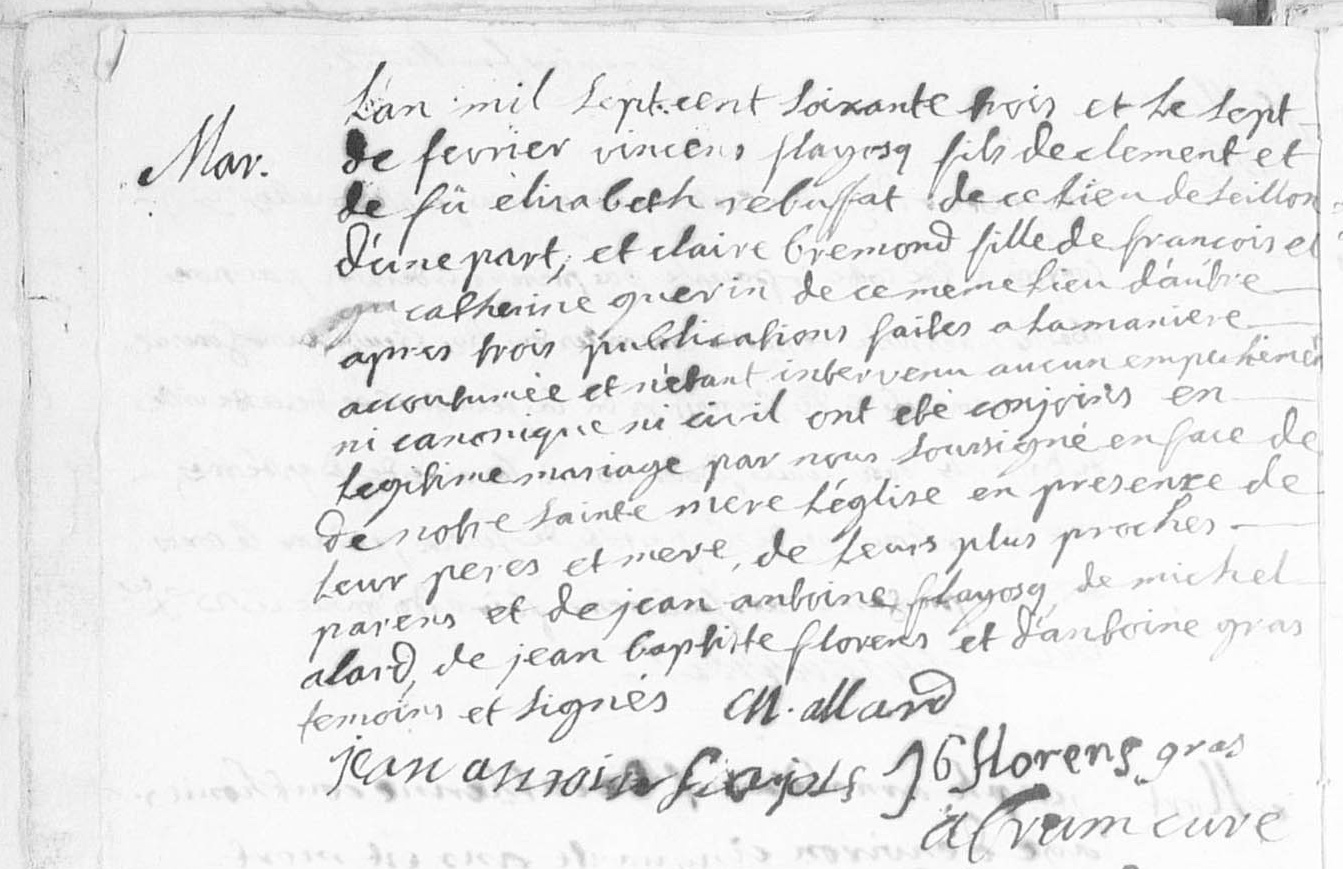 L'an mil sept cent soixante trois et le sept
Mar.
de fevrier vincens flayosq fils de clement et
de fû elisabeth rebuffat de ce lieu de seillon
d'une part, et claire bremond fille de francois et
catherine guerin de ce meme lieu d'autre
apres trois publications faites a la maniere
accoutumée et n'etant intervenu aucun empechemen
ni canonique ni civil ont eté conjoins en
legitime mariage par nous soussigné en face de
de notre sainte mere l'église en presence de
leur peres et mere, de leurs plus proches
parens et de jean antoine flayosq de michel
alard, de jean baptiste florens et d'antoine gras
temoins et signés M. allard
jean antoine J b florens gras
cure